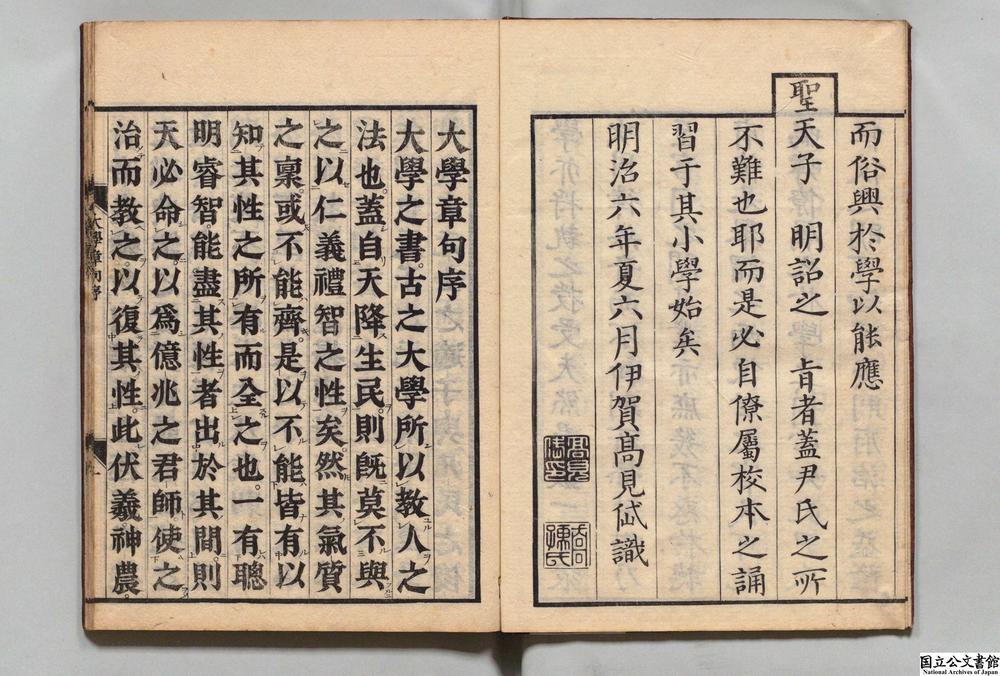 而俗興於學以能應
聖天子 明詔之 旨者蓋尹氏之所
不難也耶而是必自僚屬校本之誦
習于其小學始矣
明治六年夏六月伊賀高見㟲識
大學章句序
大學之書。古之大學所以教人之
法也。蓋自天降生民。則既莫不與
之以仁義禮智之性矣。然其氣質
之稟。或不能齊。是以不能皆有以
知其性之所有而全之也。一有聰
明睿智。能盡其性者出於其間。則
天必命之以爲億兆之君師。使之
治而教之。以復其性。此伏羲神農。
大學章句序
国立公文書館
National Archives of Japan